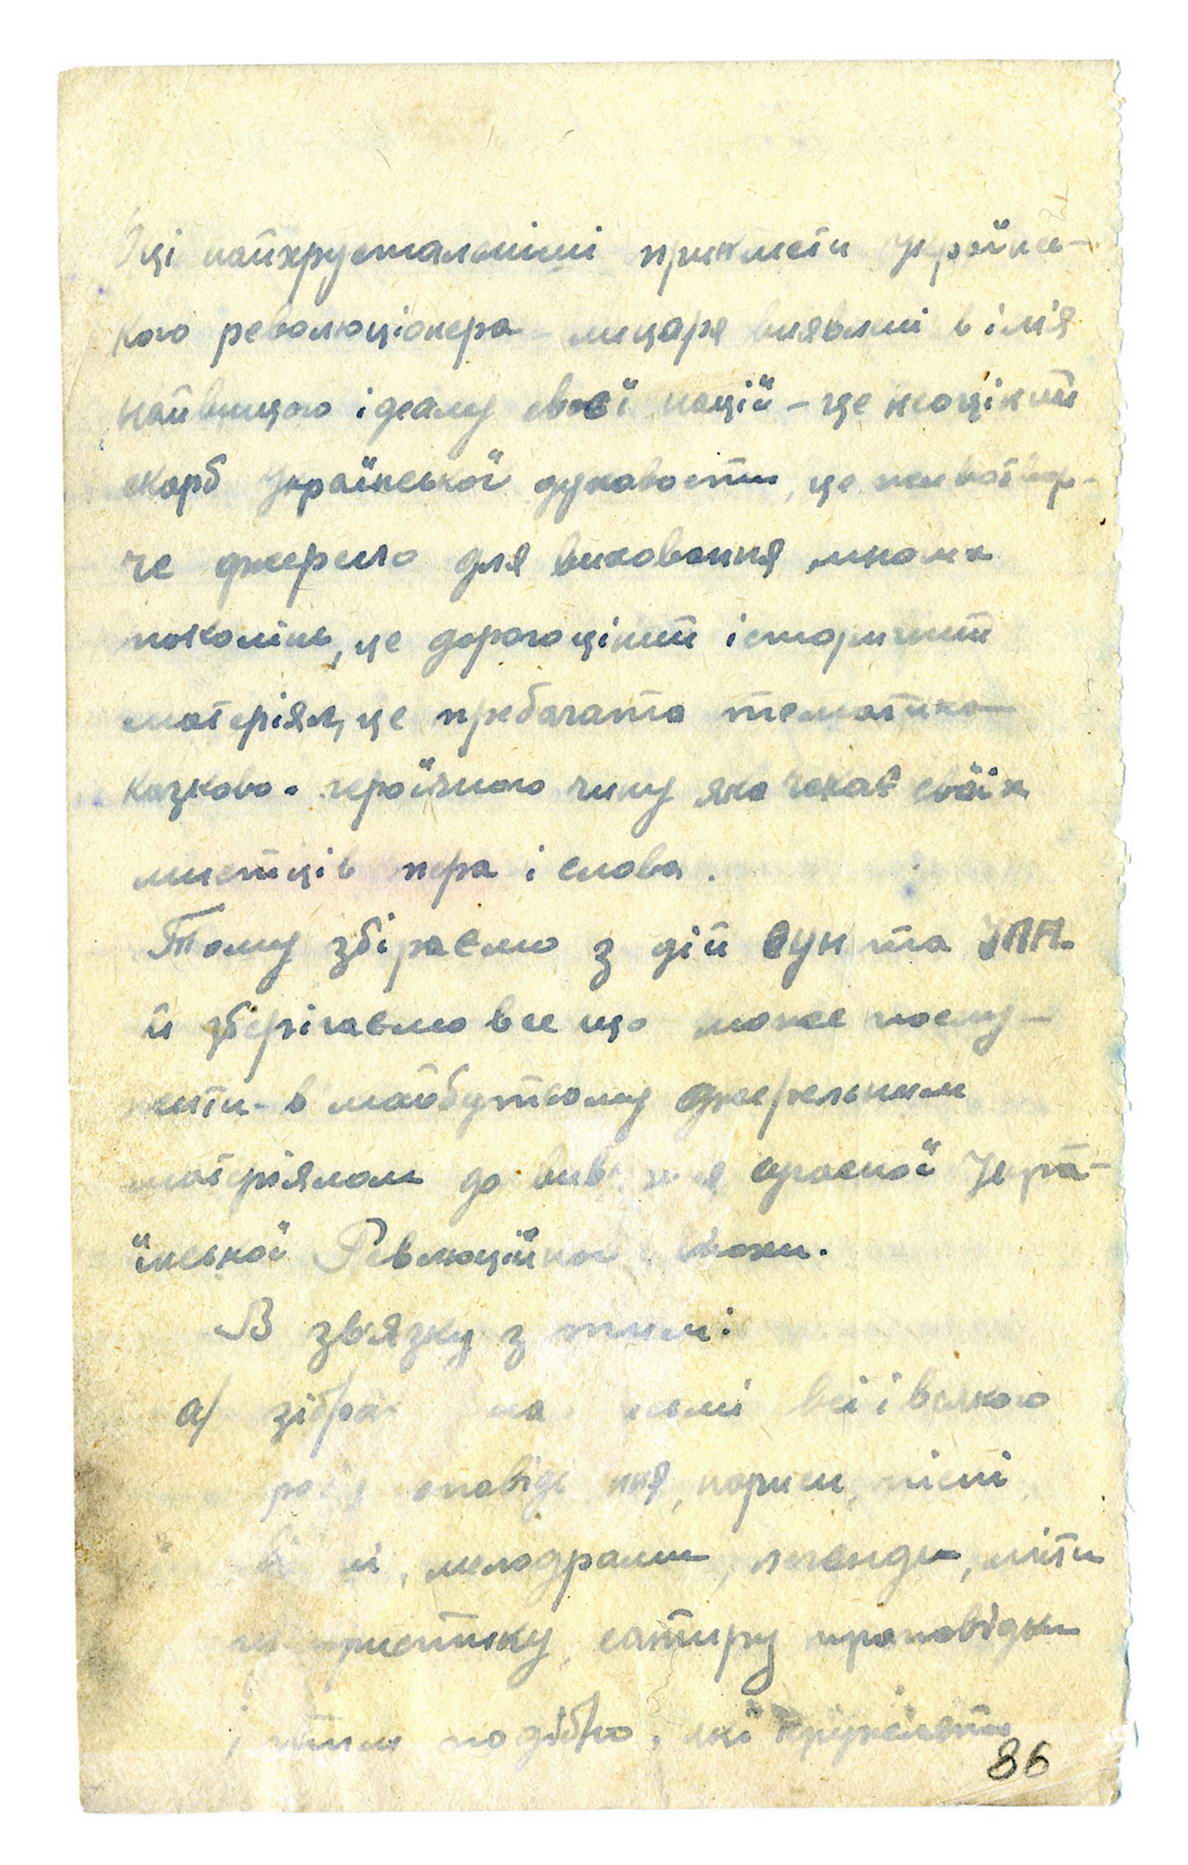 ці найкрустальніші прикмети Українсь-
кого революціонера - лицаря виявлені в ім'я
найвищого ідеалу своєї нації - це неоцінний
скарб Української духовости, це
че джерело для виховання многих
поколінь, це дорогоцінний історичний
матеріял, це пребагата тематика
казково-героїчного чину яка чекає своїх
мистців пера і слова.
Тому збіраємо з дій ОУН та УПА.
й зберігаємо все що може послу-
жити - в майбутньому джерельним
матеріялом до красної Укра-
їнської Революційної
В зв'язку з тим:
а/ всі і всякого
роду нариси, пісні,
мелодрами, легенди, міти
сатиру проповідки
і тим подібно, які кружляють
86